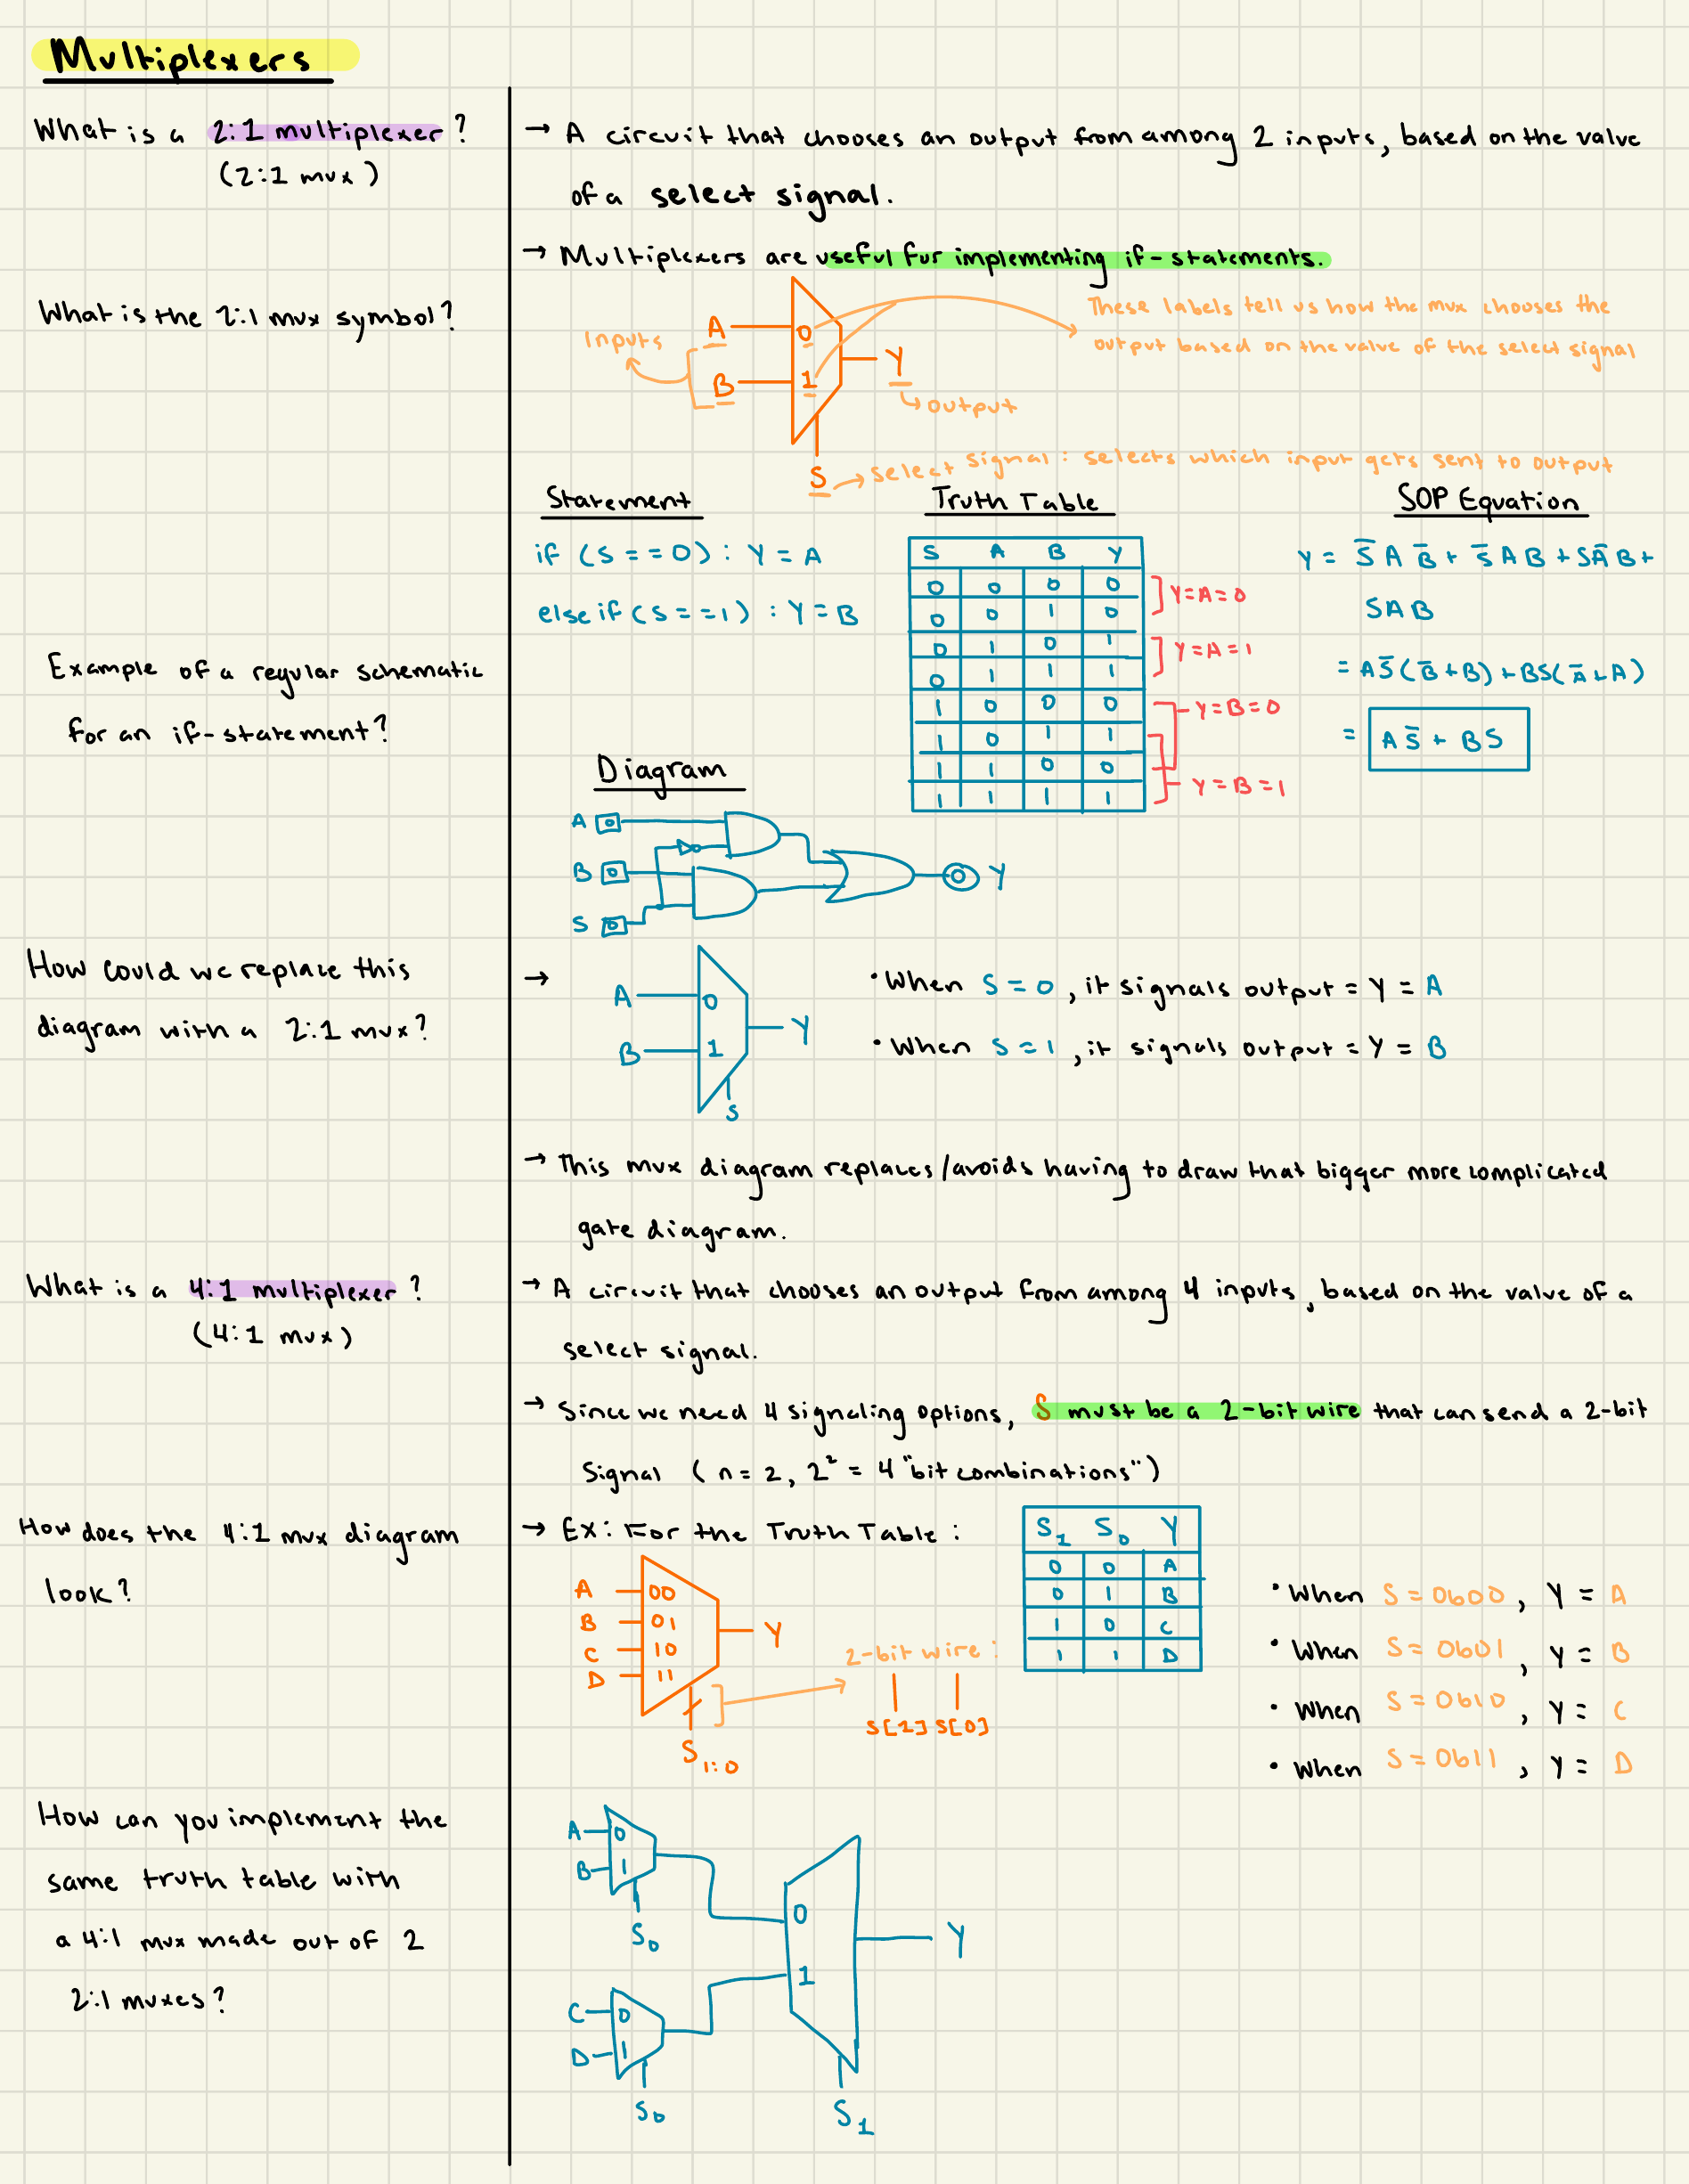 Multiplexers
What is a 2:1 multiplexer?
(2:1 mux)
→ A circuit that chooses an output from among 2 inputs, based on the value
of a select signal.
→ Multiplexers are useful for implementing if-statements.
What is the 2:1 mux symbol?
Inputs
A
B
0
1
Y
S
These labels tell us how the mux chooses the
output based on the value of the select signal
output
select signal: selects which input gets sent to output
Example of a regular schematic
for an if-statement?
Statement
if (S == 0): Y = A
else if (S == 1): Y = B
Truth Table
S A B Y
0 0 0 0
0 0 1 0
0 1 0 1
0 1 1 1
1 0 0 0
1 0 1 1
1 1 0 0
1 1 1 1
Y=A=0
Y=A=1
Y=B=0
Y=B=1
SOP Equation
Y = S̅ A B̅ + S̅ A B + S A̅ B +
S A B
= A S̅ (B̅ + B) + B S (A̅ + A)
= A S̅ + B S
Diagram
A 0
B 0
S 0
0 Y
How could we replace this
diagram with a 2:1 mux?
→
A 0
B 1
Y
S
• When S = 0, it signals output = Y = A
• When S = 1, it signals output = Y = B
→ This mux diagram replaces/avoids having to draw that bigger more complicated
gate diagram.
What is a 4:1 multiplexer?
(4:1 mux)
→ A circuit that chooses an output from among 4 inputs, based on the value of a
select signal.
→ Since we need 4 signaling options, S must be a 2-bit wire that can send a 2-bit
signal (n = 2, 2² = 4 "bit combinations")
How does the 4:1 mux diagram
look?
→ Ex: For the Truth Table:
A 00
B 01
C 10
D 11
Y
S₁:₀
2-bit wire:
S[1] S[0]
S₁ S₀ Y
0 0 A
0 1 B
1 0 C
1 1 D
• When S = 0b00, Y = A
• When S = 0b01, Y = B
• When S = 0b10, Y = C
• When S = 0b11, Y = D
How can you implement the
same truth table with
a 4:1 mux made out of 2
2:1 muxes?
A 0
B 1
S₀
C 0
D 1
S₀
0
1
Y
S₁